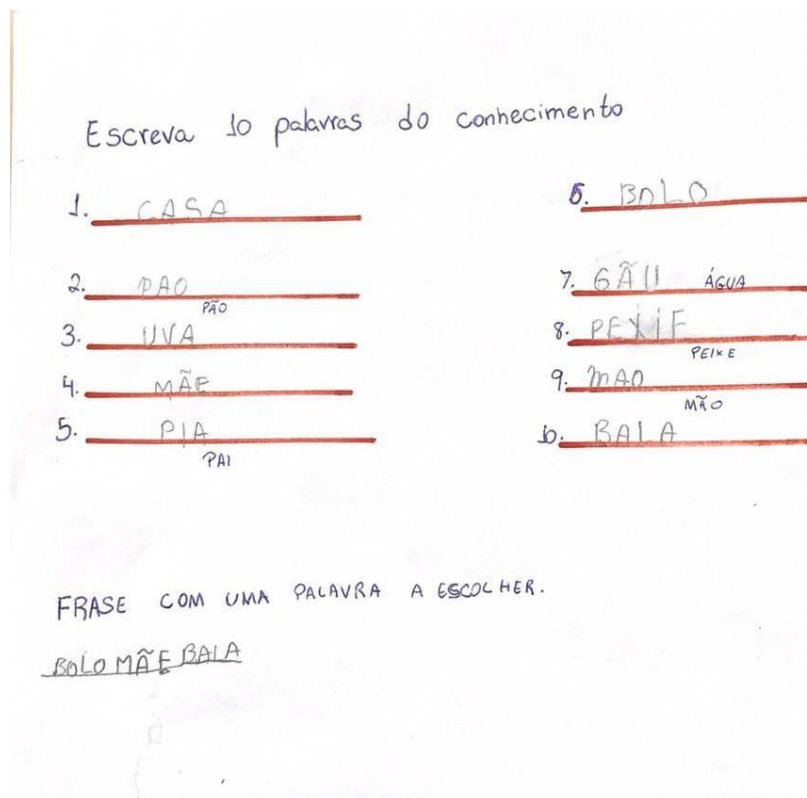 Escreva 10 palavras do conhecimento
1. CASA
2. PAO
PÃO
3. UVA
4. MÃE
5. PIA
PAI
6. BOLO
7. GÃU ÁGUA
8. PEXIF
PEIXE
9. MAO
MÃO
10. BALA
FRASE COM UMA PALAVRA A ESCOLHER.
BOLO MÃE BALA